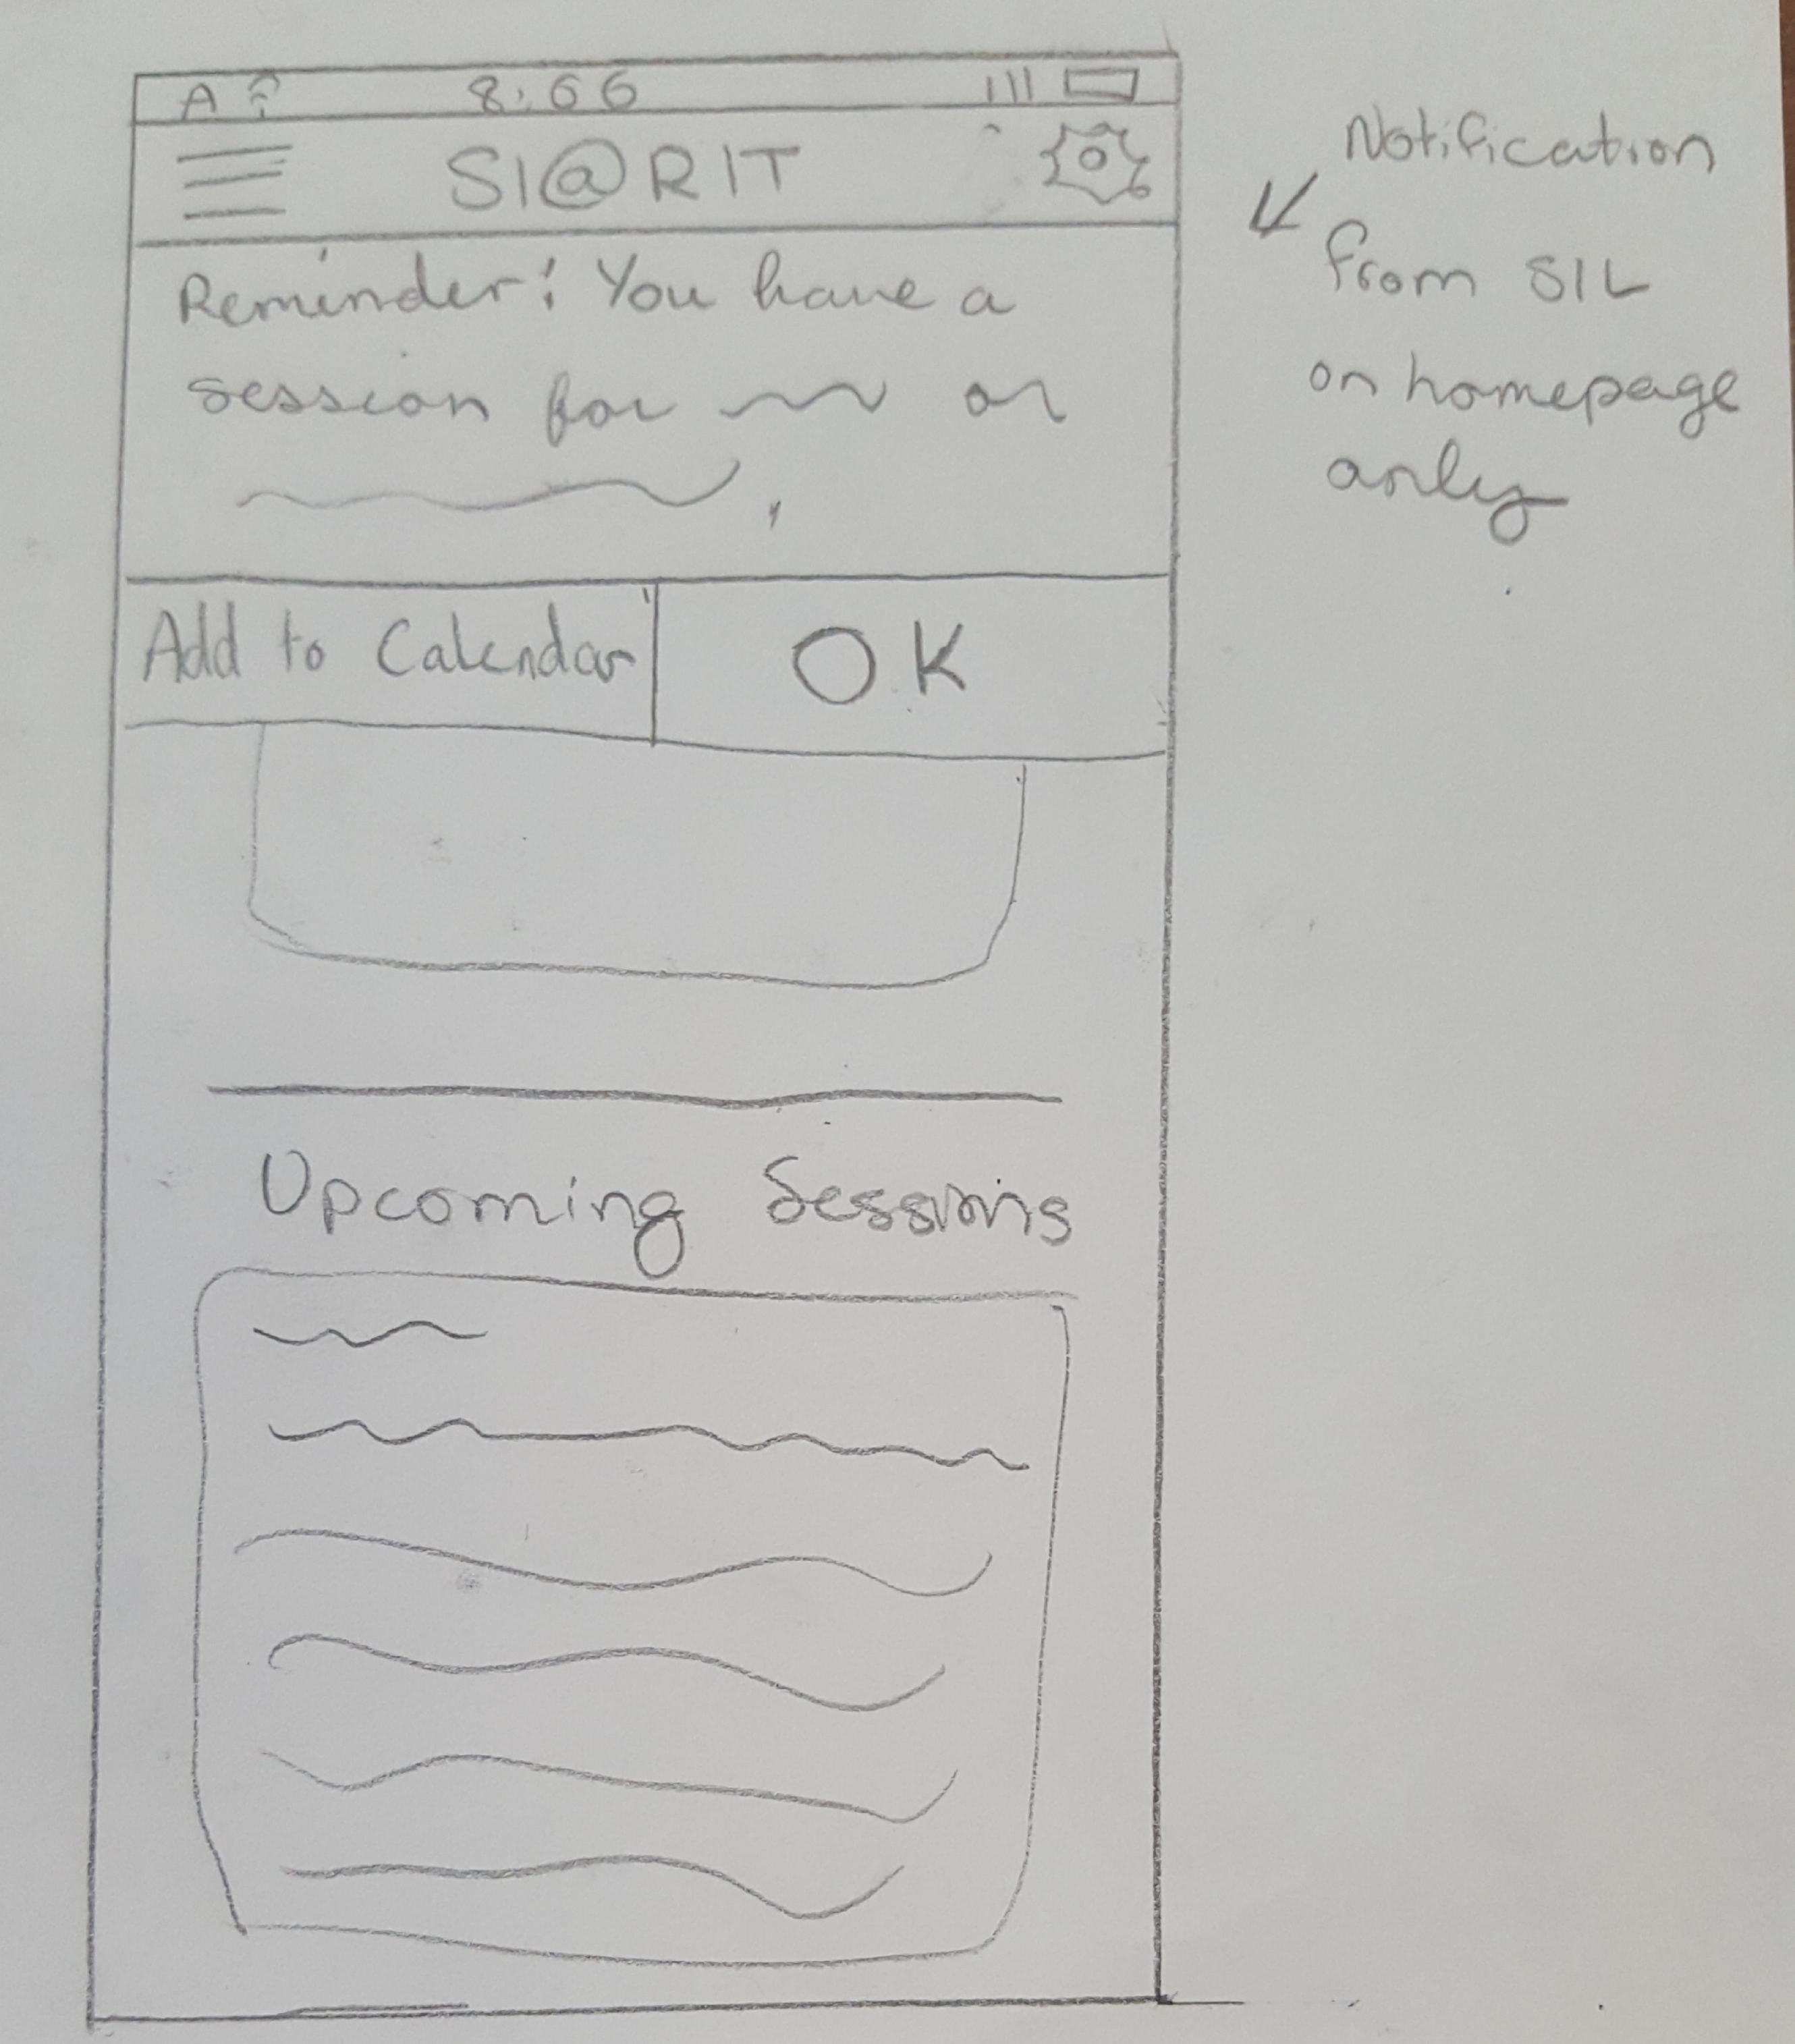 A
8:66
SI@RIT
Reminder: You have a
session for on
Add to Calendar
OK
Upcoming Sessions
Notification
from SIL
on homepage
only